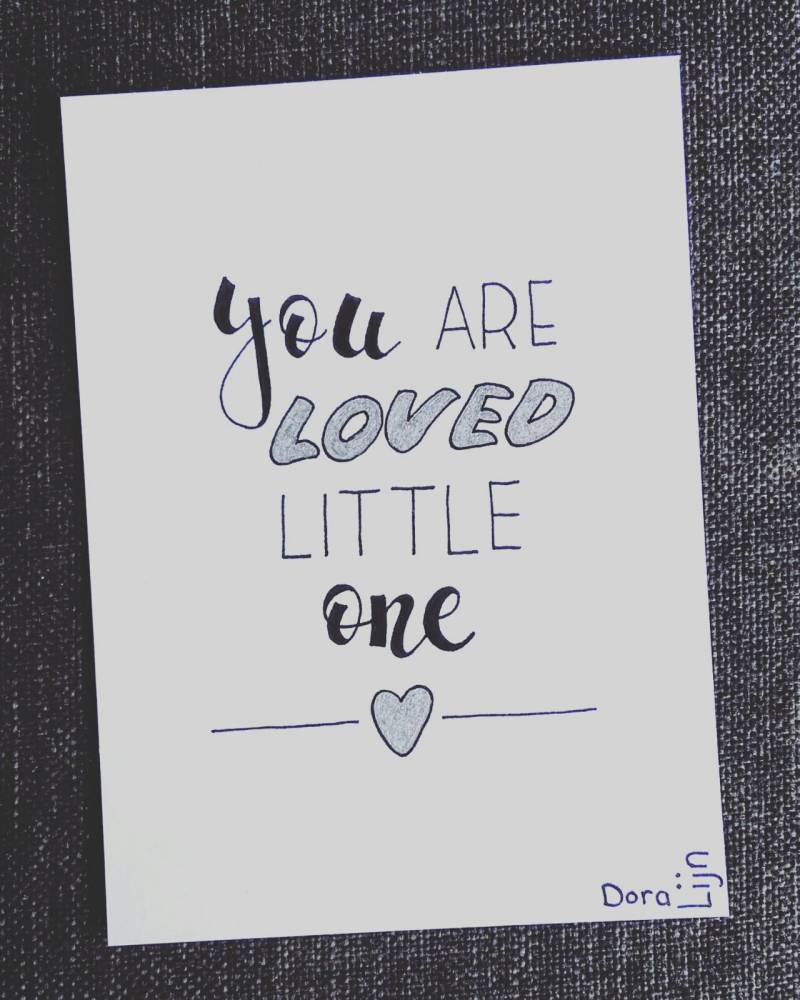 you ARE
LOVED
LITTLE
one
Dora Lijn